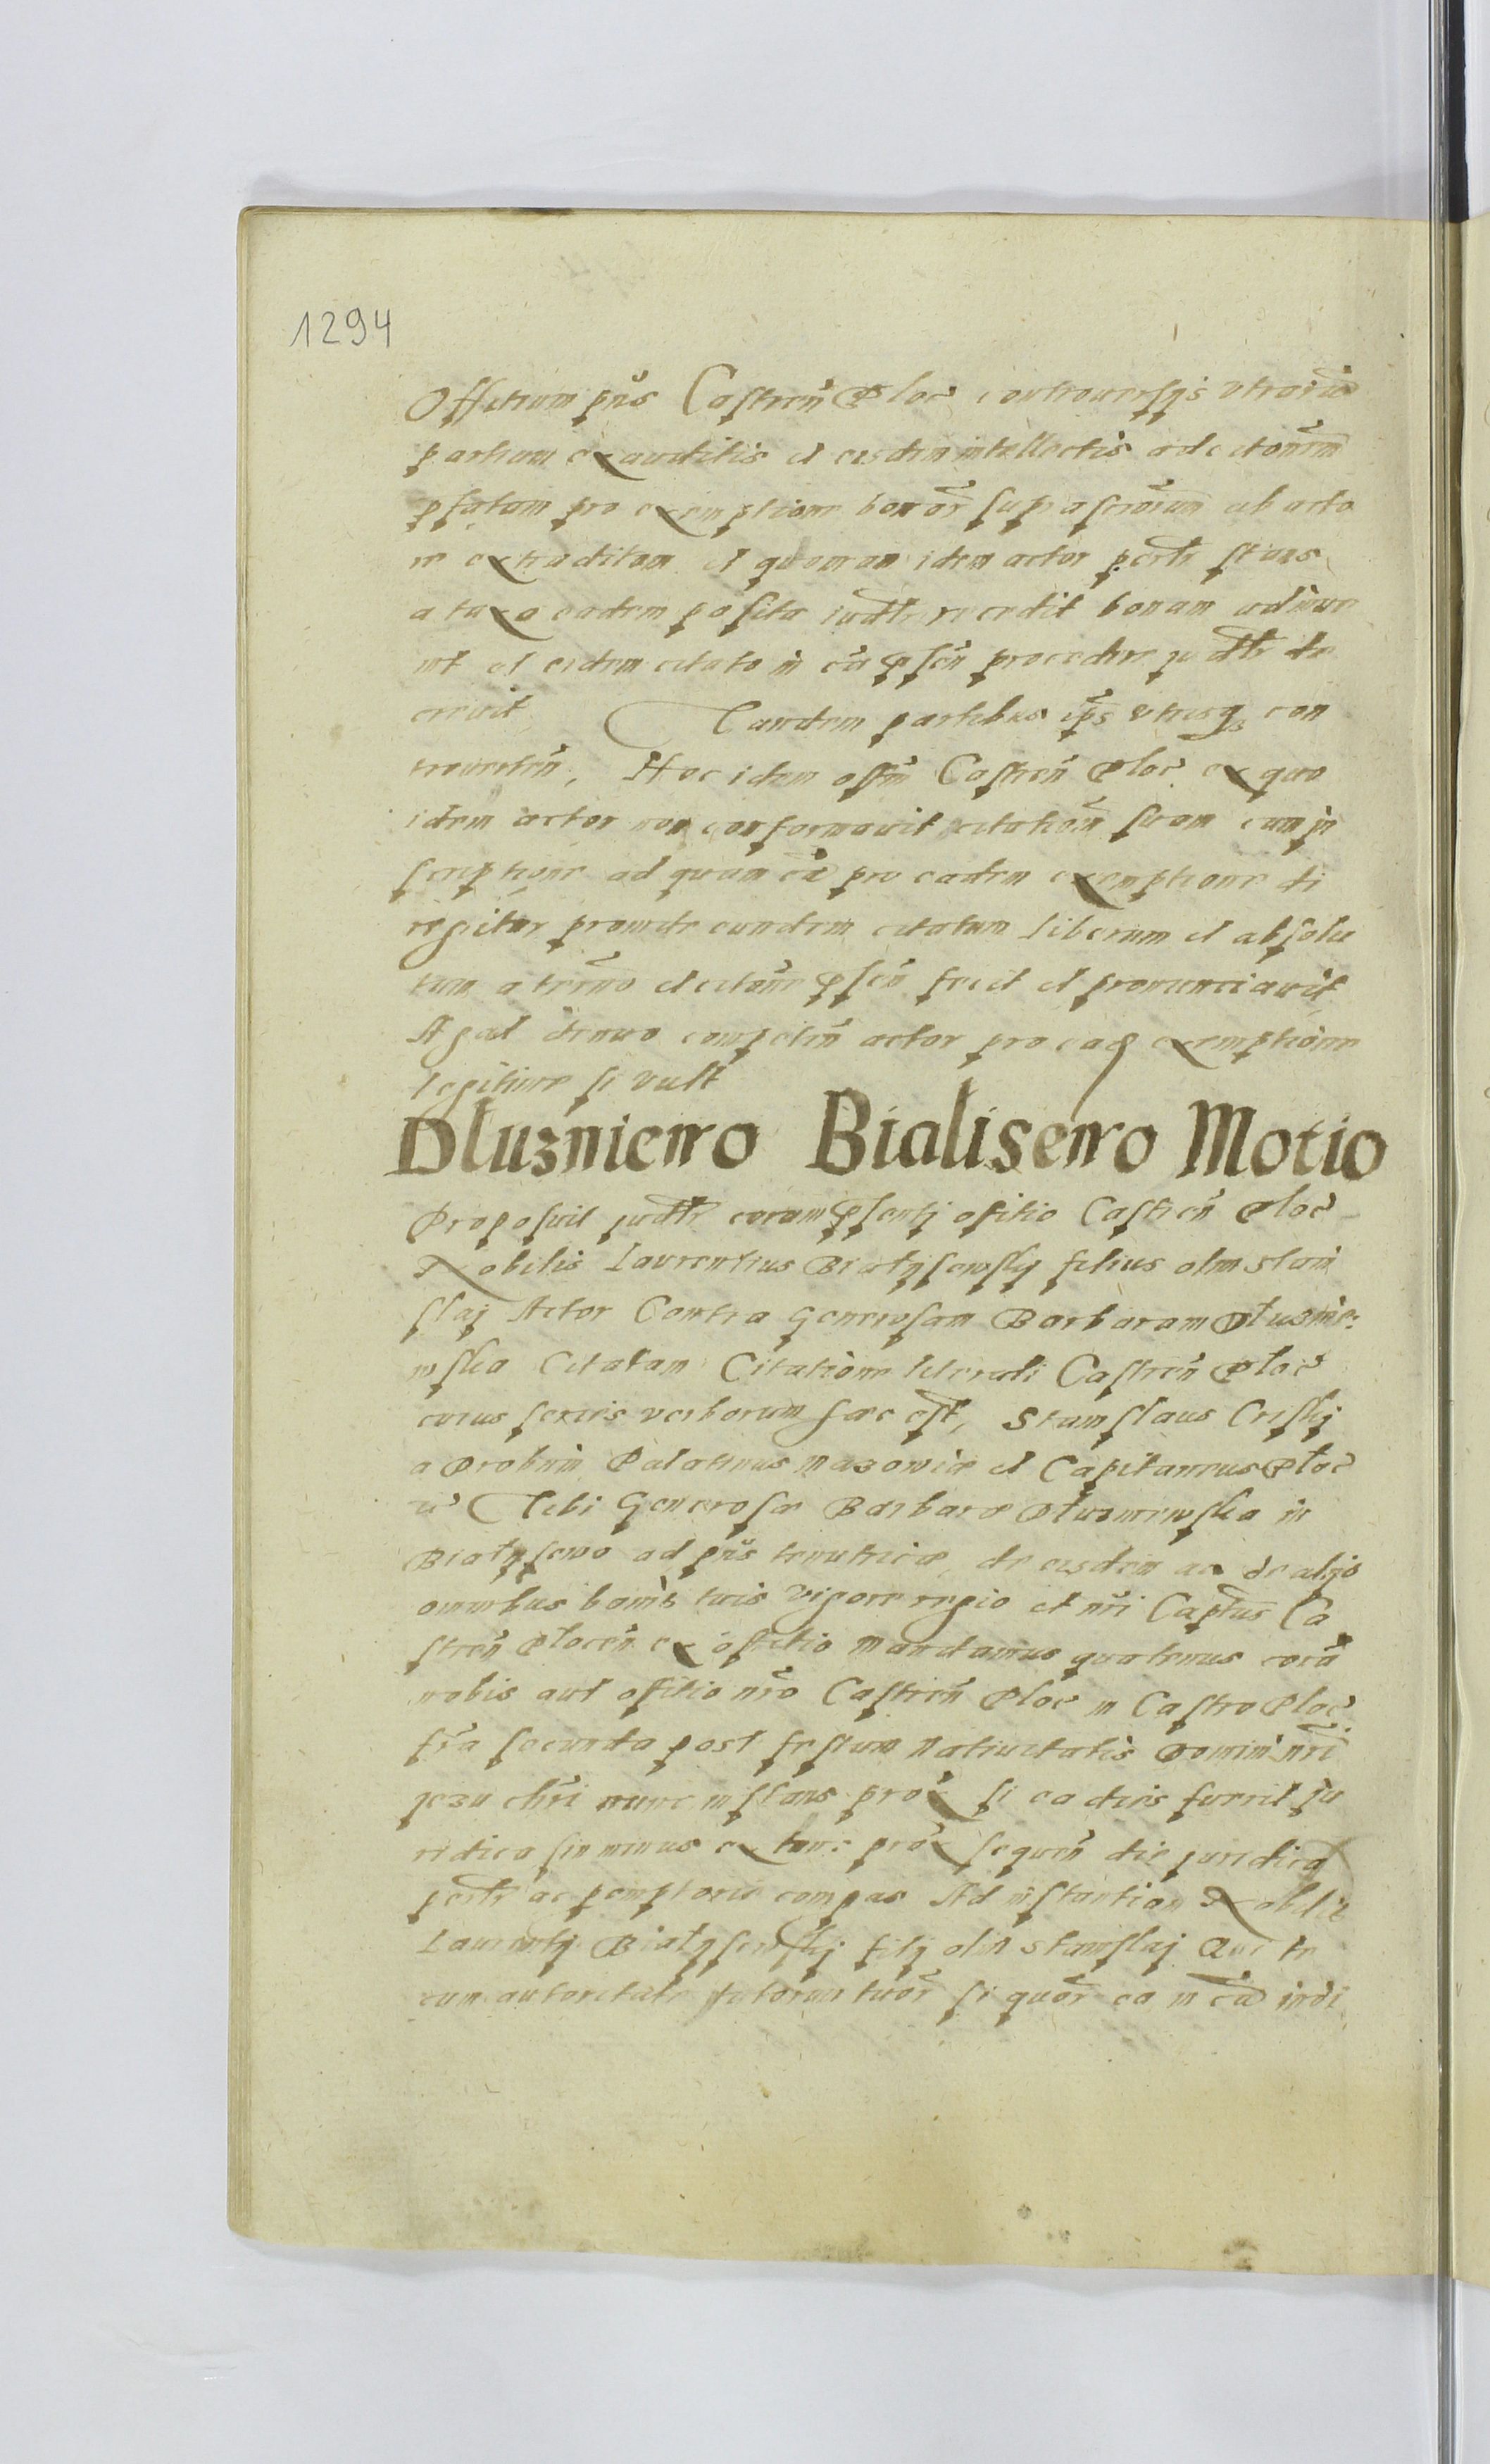 1294
Offitium pñs Castreñ Ploc̃ controuersijs vtrarũ
partium exauditis et eisdem intellectis ad citatõnem
pfatam pro exemptione bonor̃ suprascriptorum ab acto
re extraditam et quoniam idem actor personltr stans
a taxa eadem posita iudltr recedit bonam adinue
nit et eidem citato in cã pñsen procedere iudltr de
creuit Tandem partibus ip̃is vtrisqȝ con
trouerteñ, Hoc idem offm̃ Castreñ Ploc̃ ex quo
idem actor non conformauit citationẽ suam cum in
scriptione ad quam cã pro eadem exemptione di
rigitur proinde eundem citatum liberum et absolu
tum a termino et citatõne pñsen fecit et pronunciauit
Agat denuo competeñ actor pro eadẽ exemptione
legitime si vult
Dluzniewo Bialisewo Motio
Proposuit judltr coram pñsentj offitio Castreñ Ploc̃
Nobilis Laurentius Białysewskij filius olim Stani
slaj Actor Contra Generosam Barbaram Dłuznie-
wska Citatam Citatione literali Castreñ Ploc̃
cuius series verborum haec est, Stanislaus Criskj
a Drobnin Palatinus Mazowiæ et Capitaneus Płoc̃
Tibi Generosæ Barbaræ Dłuzniewska in
Białysewo ad pñs tenutricæ de eisdem ac de alijs
omnibus bonis tuis vigore regio et nr̃i Captus Ca
streñ Plocen ex offitio mandamus quatenus corã
nobis aut offitio nr̃o Castreñ Ploc̃ in Castro Ploc̃
fr̃a secunda post festum Natiuitatis Domini nr̃i
Jezu chr̃i nunc instans prox̃ si ea dies fuerit iu
ridica sin minus ex tunc prox̃ sequeñ die iuridica
personltr ac peremptorie compas Ad instantiam Nobilis
Laurentij Białysewskj filij olim Stanislaj Que te
cum autoritate tutorum tuor̃ si quor̃ ea in cã indi